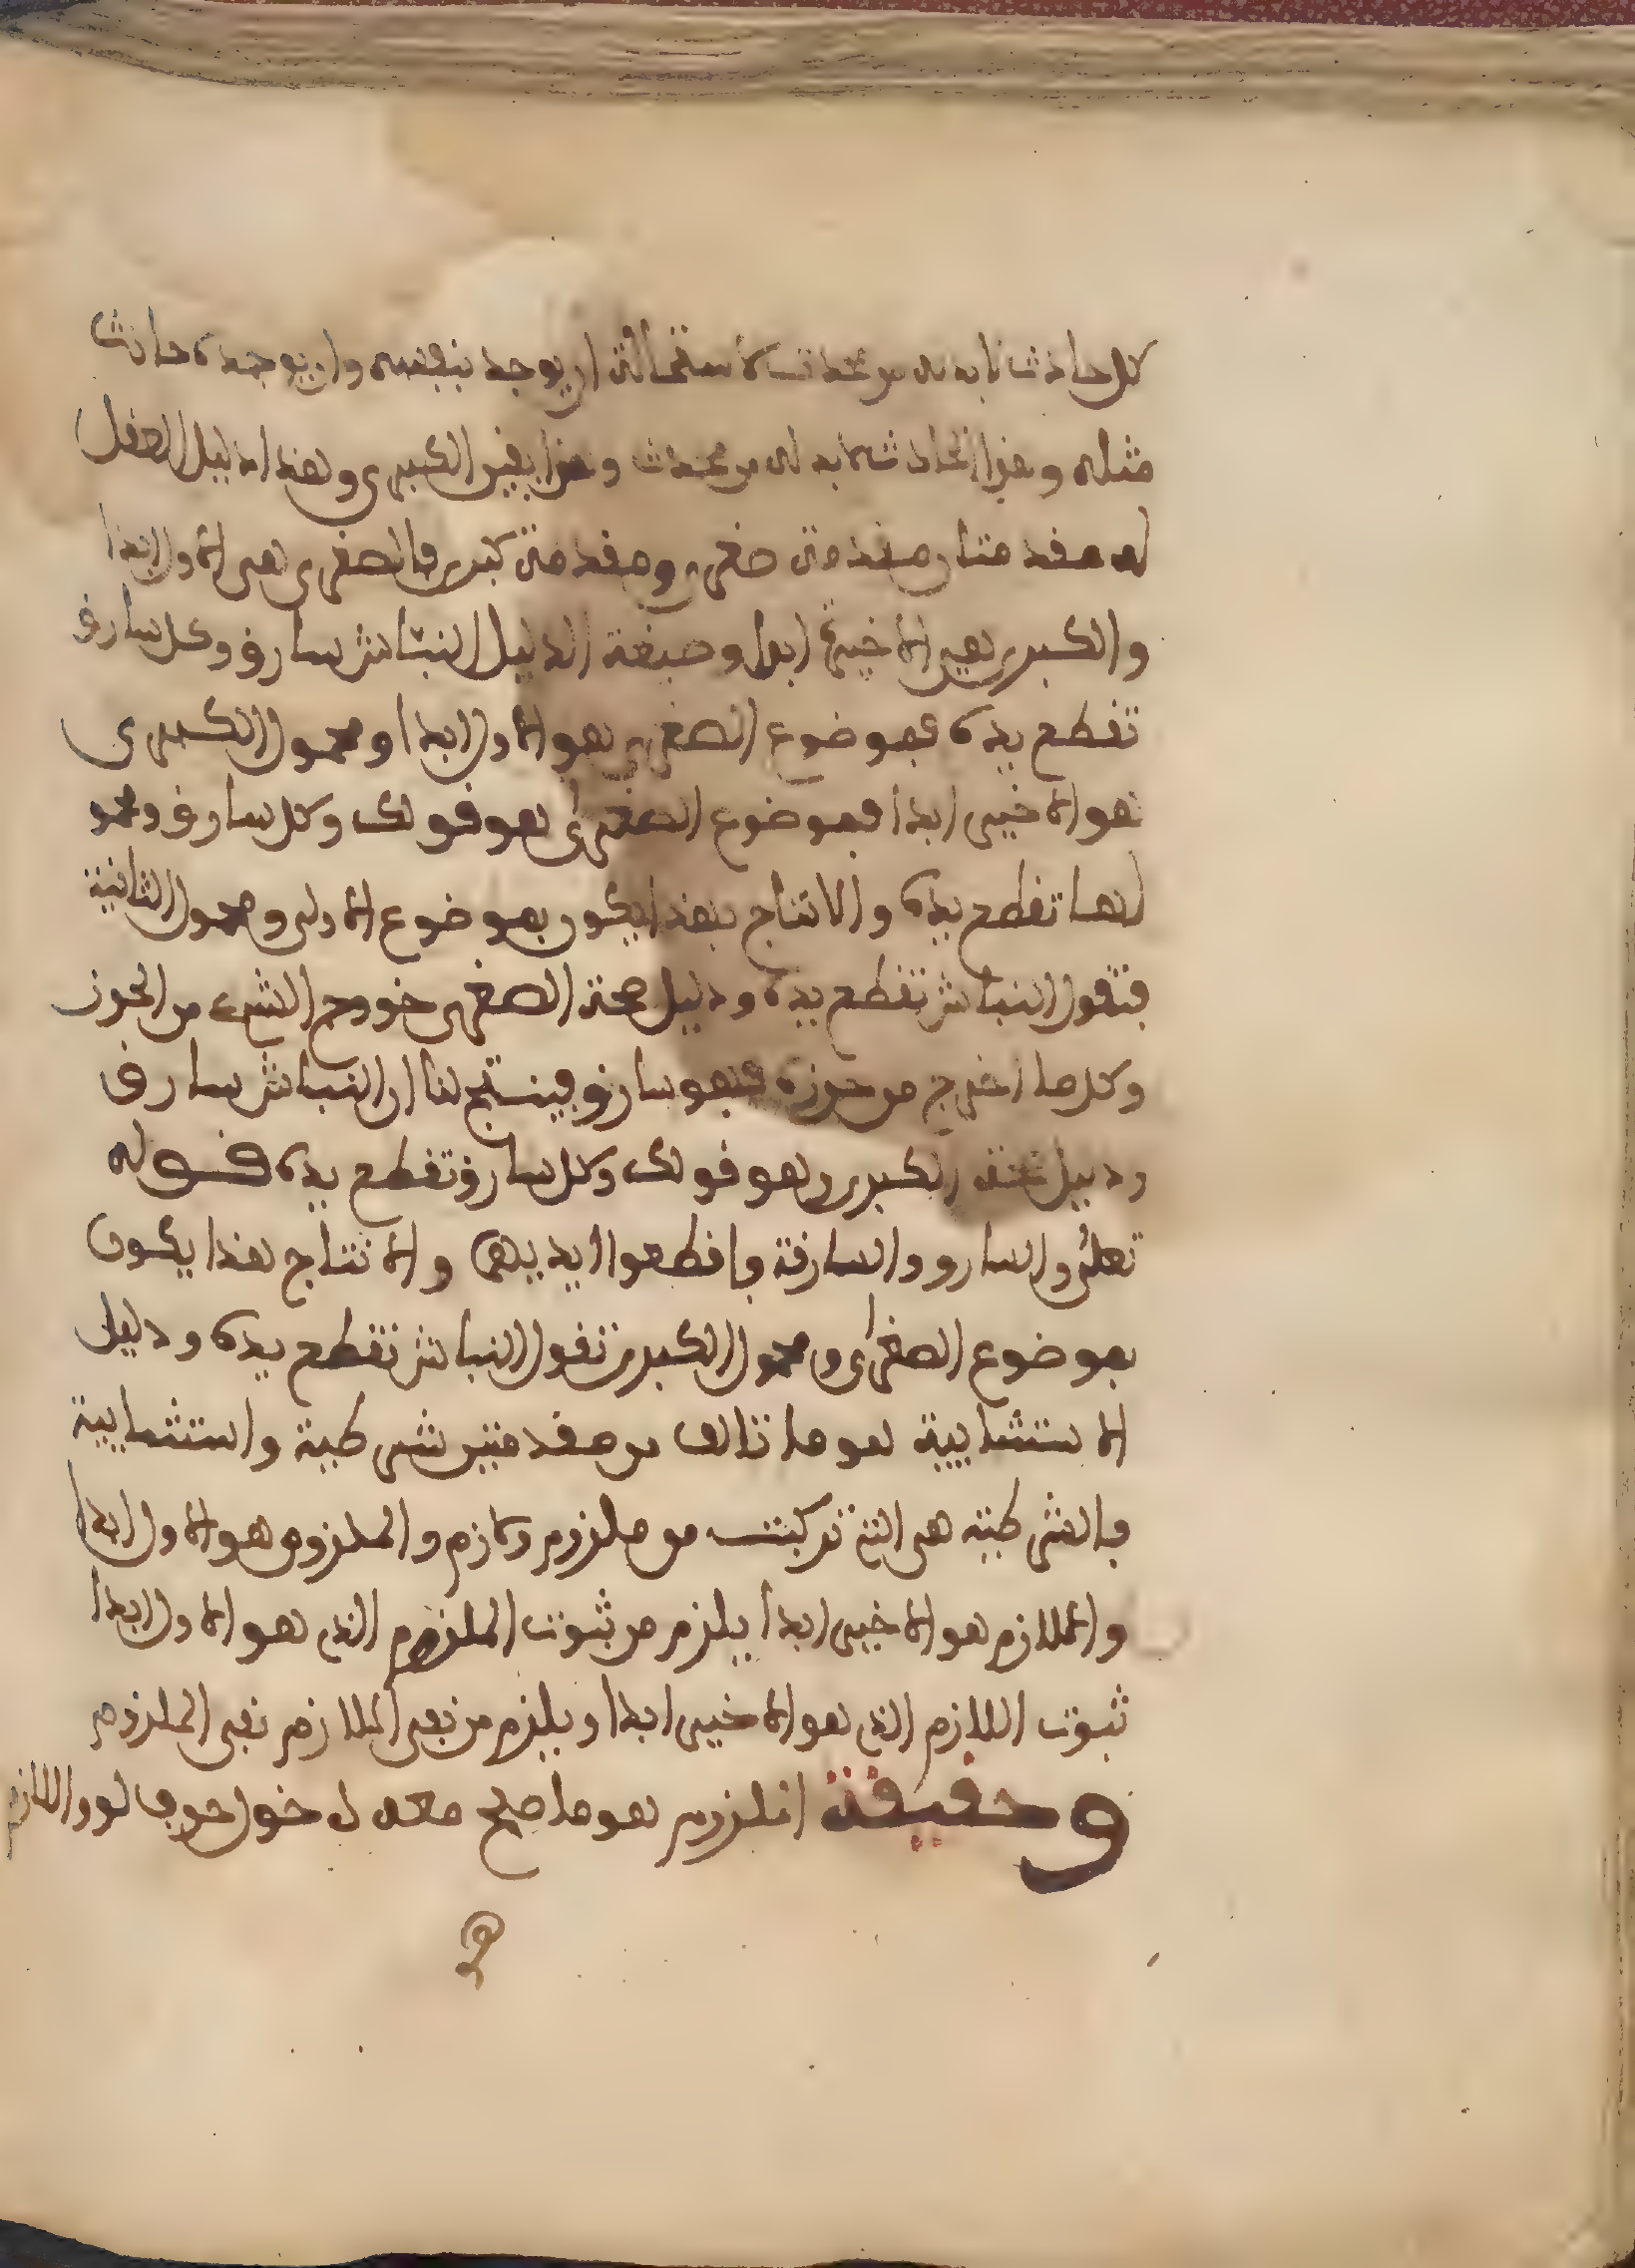 كل حادث لا بد له من محدث لاستحالة ان يوجد بنفسه وان يوجده حادث
مثله وهذا الحادث لا بد له من محدث وهذا يقين الكبرى وهذا دليل العقل
له مقدمتان مقدمة صغرى ومقدمة كبرى فالصغرى هي الاول ابدا
والكبرى هي الاخيرة ابدا وصيغة الدليل النباش سارق وكل سارق
تقطع يده فموضوع الصغرى هو الاول ابدا ومحمول الكبرى
هو الاخير ابدا فموضوع الصغرى هو قولك وكل سارق ومحمو
لها تقطع يده والانتاج بهذا يكون بموضوع الاولى ومحمول الثانية
فتقول النباش تقطع يده ودليل صحة الصغرى خروج الشيء من الحوز
وكل ما اخرج من حوزه فهو سارق فينتج لنا ان النباش سارق
ودليل صحة الكبرى وهو قولك وكل سارق تقطع يده قوله
تعلى والسارق والسارقة فاقطعوا ايديهما والانتاج هذا يكون
بموضوع الصغرى ومحمول الكبرى تقول النباش تقطع يده ودليل
الاستثنايية هو ما تالف من مقدمتين شرطية واستثنايية
فالشرطية هي التي تركبت من ملزوم ولازم والملزوم هو الاول ابدا
واللازم هو الاخير ابدا يلزم من ثبوت الملزوم الذي هو الاول ابدا
ثبوت اللازم الذي هو الاخير ابدا ويلزم من نفي اللازم نفي الملزوم
وحقيقة الملزوم هو ما صلح معه دخول حرف لو واللازم
هو